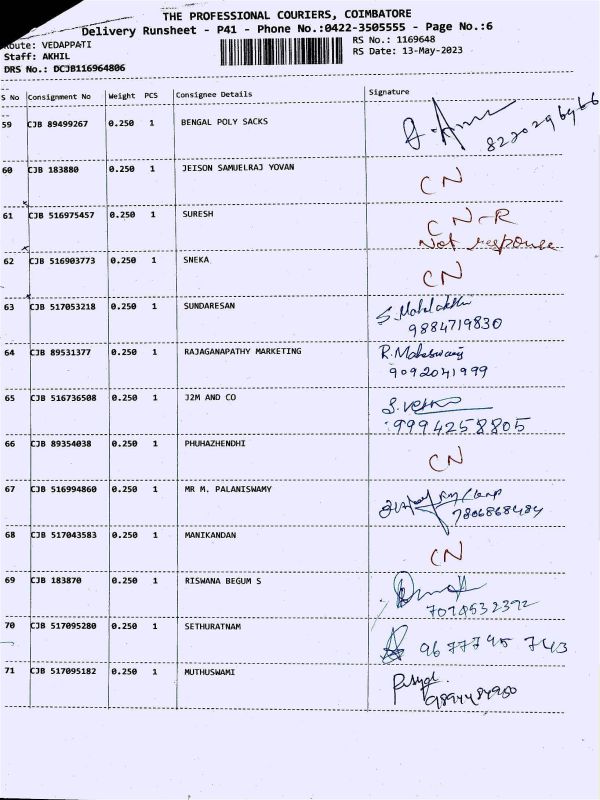 THE PROFESSIONAL COURIERS, COIMBATORE
Delivery Runsheet - P41 - Phone No.:0422-3505555 - Page No.:6
Route: VEDAPPATI
RS No.: 1169648
Staff: AKHIL
RS Date: 13-May-2023
DRS No.: DCJB116964806
S No Consignment No Weight PCS Consignee Details Signature
59 CJB 89499267 0.250 1 BENGAL POLY SACKS
8220296966
60 CJB 183880 0.250 1 JEISON SAMUELRAJ YOVAN CN
61 CJB 516975457 0.250 1 SURESH CN-R
Not response
62 CJB 516903773 0.250 1 SNEKA CN
63 CJB 517053218 0.250 1 SUNDARESAN
9884719830
64 CJB 89531377 0.250 1 RAJAGANAPATHY MARKETING R.Maheswari
9092041999
65 CJB 516736508 0.250 1 J2M AND CO
9994258805
66 CJB 89354038 0.250 1 PHUHAZHENDHI CN
67 CJB 516994860 0.250 1 MR M. PALANISWAMY
7806868484
68 CJB 517043583 0.250 1 MANIKANDAN CN
69 CJB 183870 0.250 1 RISWANA BEGUM S
70 CJB 517095280 0.250 1 SETHURATNAM 9677795 743
71 CJB 517095182 0.250 1 MUTHUSWAMI